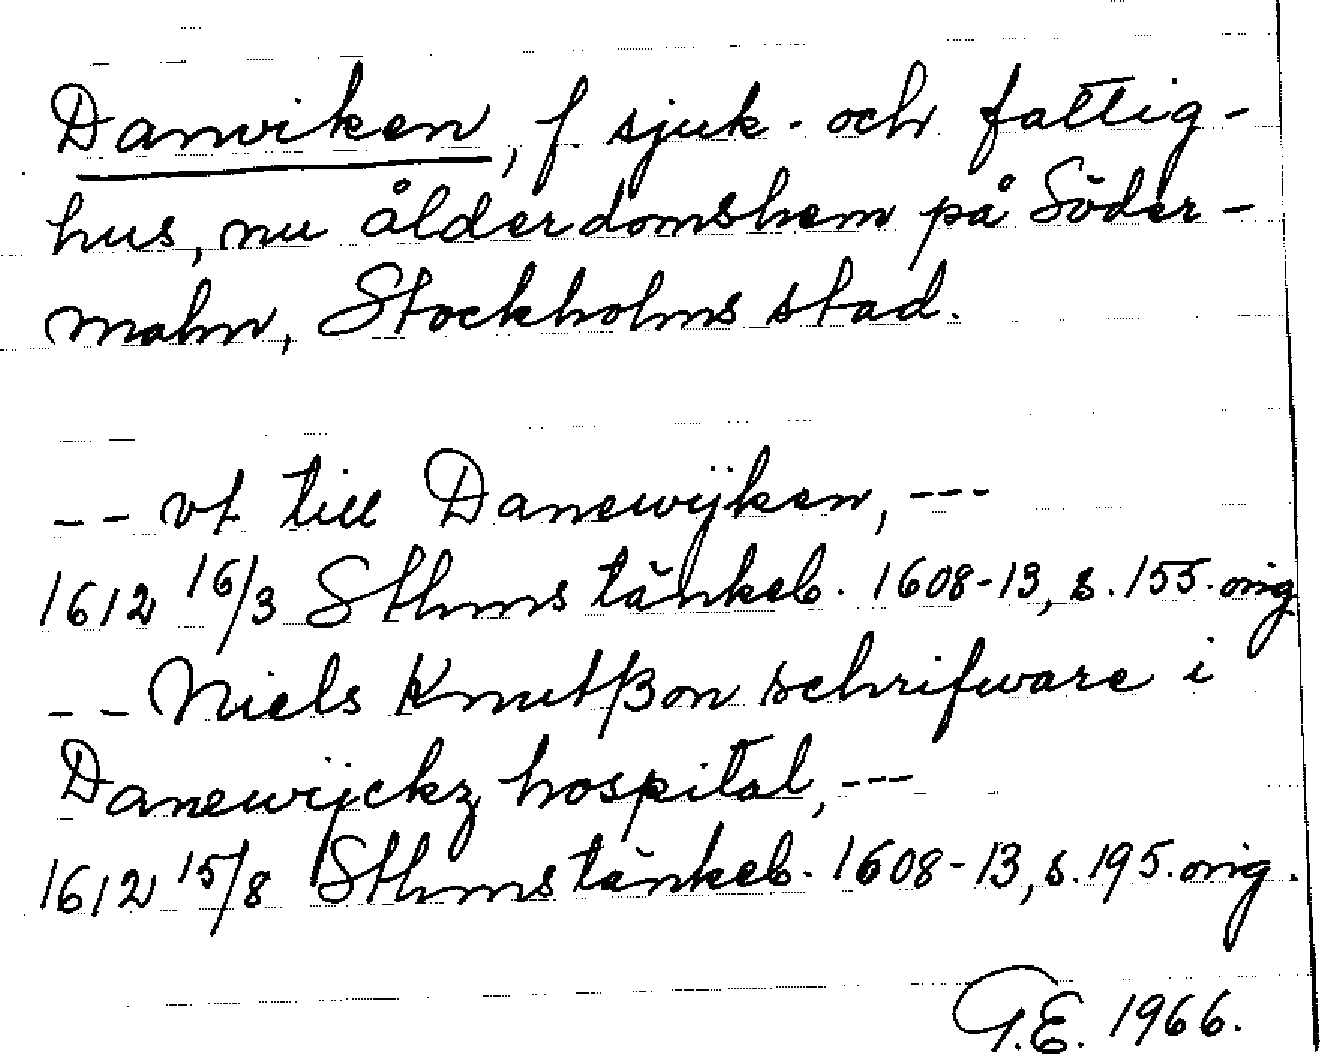 Danviken, f. sjuk- och fattig-
hus, nu ålderdomshem på Söder-
malm, Stockholms stad.
-- vt till Danewijken, ---
1612 16/3 Sthms tänkeb. 1608-13, s. 155. orig
-- Niels Knutßon schrifware i
Danewijckz hospital, ---
1612 15/8 Sthms tänkeb. 1608-13, s. 195. orig.
G.E. 1966.